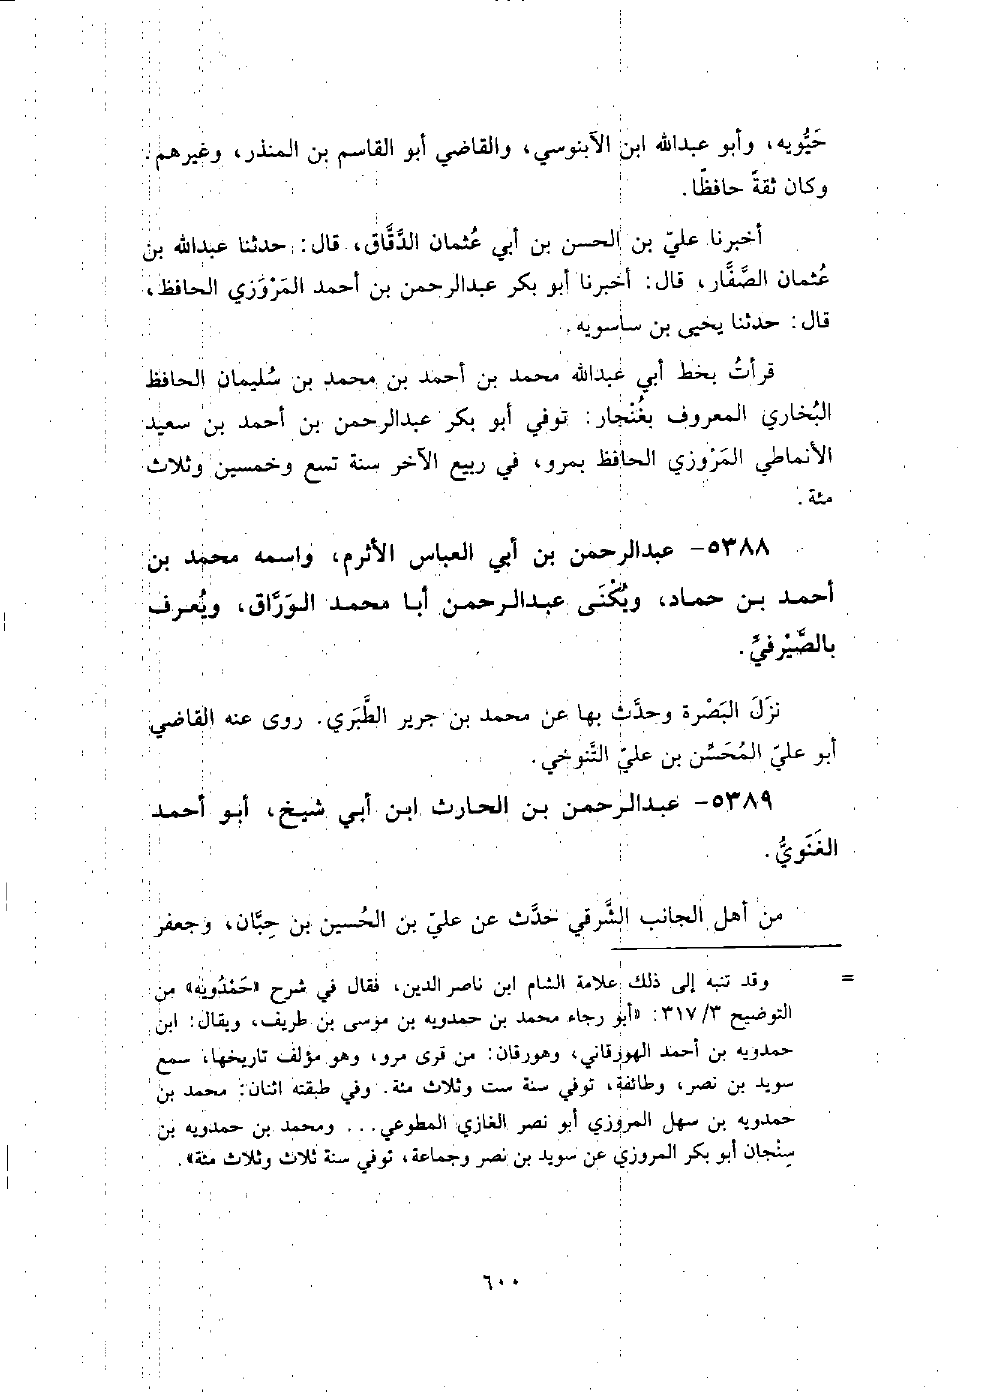 حَيُّويه، وأبو عبدالله ابن الآبنوسي، والقاضي أبو القاسم بن المنذر، وغيرهم.
وكان ثقةً حافظًا.
أخبرنا عليّ بن الحسن بن أبي عُثمان الدَّقَّاق، قال: حدثنا عبدالله بن
عُثمان الصَّفَّار، قال: أخبرنا أبو بكر عبدالرحمن بن أحمد المَرْوَزي الحافظ،
قال: حدثنا يحيى بن ساسويه.
قرأتُ بخط أبي عبدالله محمد بن أحمد بن محمد بن سُليمان الحافظ
البُخاري المعروف بغُنْجار: توفي أبو بكر عبدالرحمن بن أحمد بن سعيد
الأنماطي المَرْوزي الحافظ بمرو، في ربيع الآخر سنة تسع وخمسين وثلاث
مئة.
٥٣٨٨- عبدالرحمن بن أبي العباس الأثرم، واسمه محمد بن
أحمد بن حماد، ويُكْنَى عبدالرحمن أبا محمد الوَرَّاق، ويُعرف
بالصَّيْرفيِّ.
نزَلَ البَصْرة وحدَّث بها عن محمد بن جرير الطَّبَري. روى عنه القاضي
أبو عليّ المُحَسِّن بن عليّ التَّنوخي.
٥٣٨٩- عبدالرحمن بن الحارث ابن أبي شيخ، أبو أحمد
الغَنَويُّ.
من أهل الجانب الشَّرقي حدَّث عن عليّ بن الحُسين بن حِبَّان، وجعفر
= وقد تنبه إلى ذلك علامة الشام ابن ناصر الدين، فقال في شرح «حَمْدُويَه» من
التوضيح ٣/ ٣١٧: «أبو رجاء محمد بن حمدويه بن موسى بن طريف، ويقال: ابن
حمدويه بن أحمد الهورقاني، وهورقان: من قرى مرو، وهو مؤلف تاريخها، سمع
سويد بن نصر، وطائفة، توفي سنة ست وثلاث مئة. وفي طبقته اثنان: محمد بن
حمدويه بن سهل المروزي أبو نصر الغازي المطوعي... ومحمد بن حمدويه بن
سِنْجان أبو بكر المروزي عن سويد بن نصر وجماعة، توفي سنة ثلاث وثلاث مئة».
٦٠٠